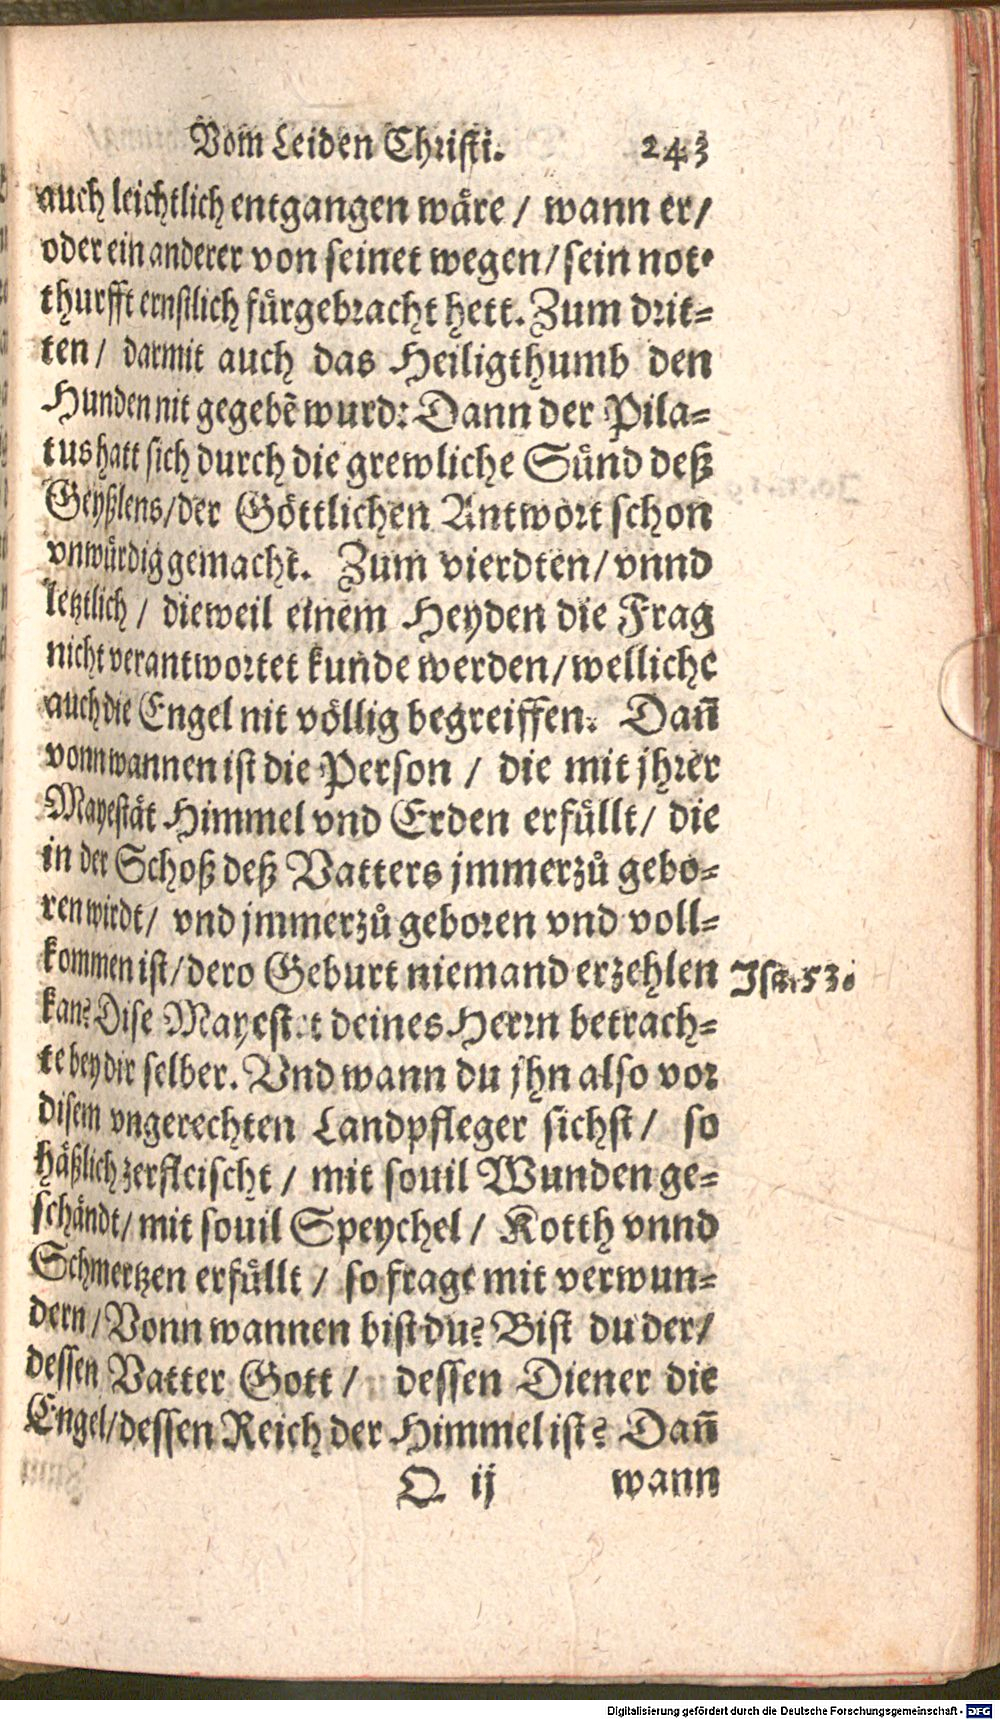 Vom Leiden Christi. 243
auch leichtlich entgangen wåre / wann er/
oder ein anderer von seinet wegen/ sein not-
thurfft ernstlich fůrgebracht hett. Zum drit-
ten/ darmit auch das Heiligthumb den
Hunden nit gegebē wurd: Dann der Pila-
tus hatt sich durch die grewliche Sůnd deß
Geyßlens/der Göttlichen Antwort schon
vnwůrdig gemacht. Zum vierdten/ vnnd
letztlich / dieweil einem Heyden die Frag
nicht verantwortet kunde werden/welliche
auch die Engel nit völlig begreiffen. Dañ
vonn wannen ist die Person / die mit jhrer
Mayestät Himmel vnd Erden erfůllt/ die
in der Schoß deß Vatters jmmerzů gebo-
ren wirdt/ vnd jmmerzů geboren vnd voll-
kommen ist/dero Geburt niemand erzehlen
Isa. 53.
kan? Dise Mayestet deines Herrn betrach-
te bey dir selber. Vnd wann du jhn also vor
disem vngerechten Landpfleger sichst/ so
häßlich zerfleischt / mit souil Wunden ge-
schändt/ mit souil Speychel / Kotth vnnd
Schmertzen erfůllt / so frage mit verwun-
dern/Vonn wannen bist du? Bist du der/
dessen Vatter Gott / dessen Diener die
Engel/dessen Reich der Himmel ist? Dañ
Q ij wann
Digitalisierung gefördert durch die Deutsche Forschungsgemeinschaft - DFG